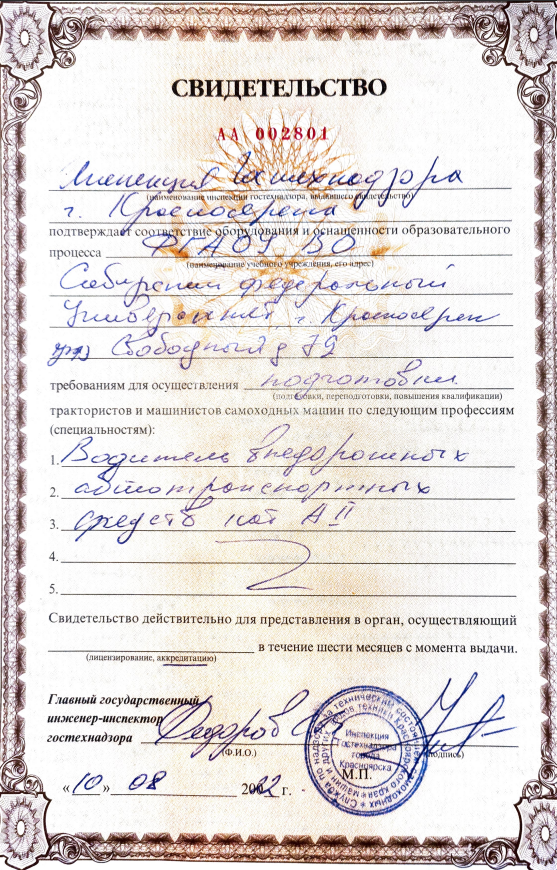 СВИДЕТЕЛЬСТВО
АА 002801
Инспекция Гостехнадзора
(наименование инспекции гостехнадзора, выдавшего свидетельство)
г. Красноярска
подтверждает соответствие оборудования и оснащенности образовательного
процесса ФГАОУ ВО
(наименование учебного учреждения, его адрес)
Сибирский федеральный
Университет г. Красноярск
Свободный д 79
требованиям для осуществления подготовки
(подготовки, переподготовки, повышения квалификации)
трактористов и машинистов самоходных машин по следующим профессиям
(специальностям):
1. Водитель внедорожных
2. автотранспортных
3. средств кат А II
4.
5.
Свидетельство действительно для представления в орган, осуществляющий
в течение шести месяцев с момента выдачи.
(лицензирование, аккредитацию)
Главный государственный
инженер-инспектор
гостехнадзора Федоров
(Ф.И.О.)
(подпись)
Инспекция
Гостехнадзора
города
Красноярска
М.П.
«10» 08 2022 г.